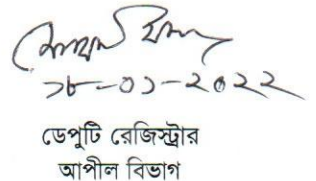 ১৮-০১-২০২২
ডেপুটি রেজিস্ট্রার
আপীল বিভাগ